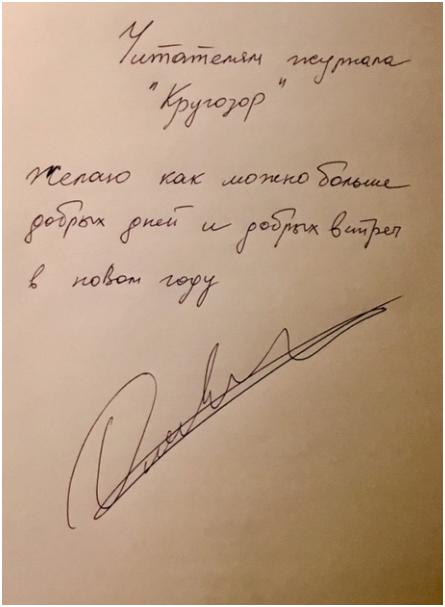 Читателям журнала
"Кругозор"
Желаю как можно больше
добрых дней и добрых встреч
в новом году